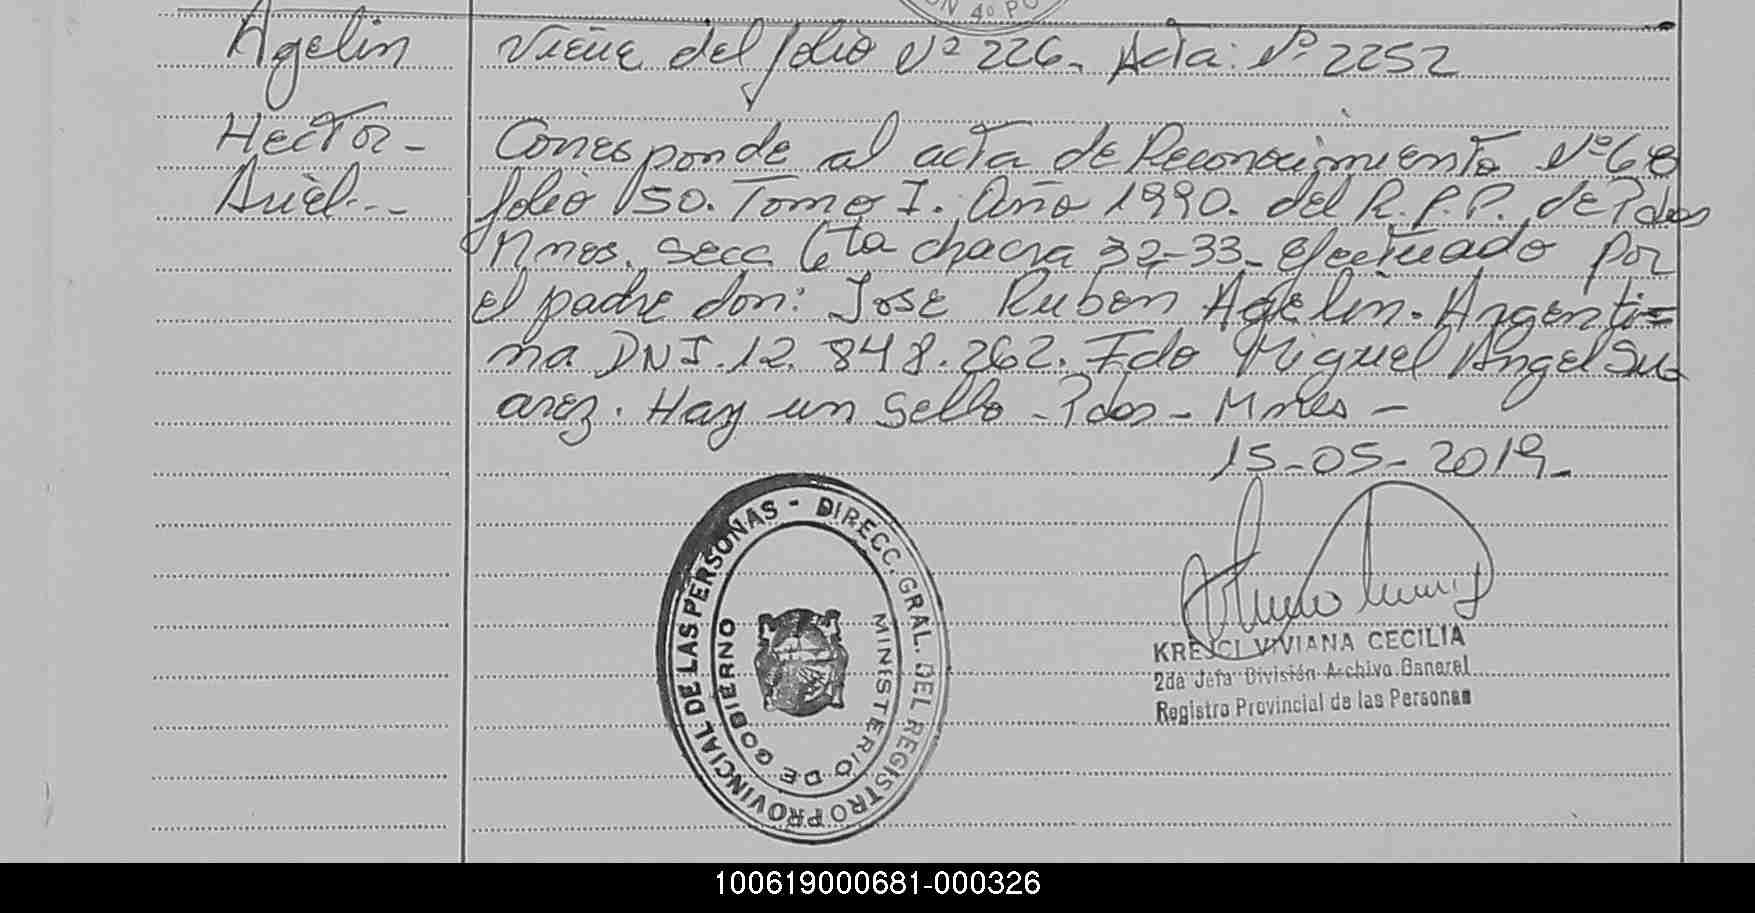 Agelin
Hector -
Ariel---
Viene del folio Nº 226. Acta: Nº 2252
Corresponde al acta de Reconocimiento Nº 68
folio 150. Tomo I. Año 1990. del R.P.P. de Pdas
Mnes. Secc. 6ta chacra 32-33_ efectuado por
el padre don: Jose Ruben Agelin. Argenti=
na DNI.12.848.262. Fdo Miguel Angel Su
arez. Hay un Sello - Pdas - Mnes -
15-05-2019_
DIRECC. GRAL. DEL REGISTRO PROVINCIAL DE LAS PERSONAS -
MINISTERIO DE GOBIERNO
KREJCI VIVIANA CECILIA
2da Jefa División Archivo General
Registro Provincial de las Personas
100619000681-000326